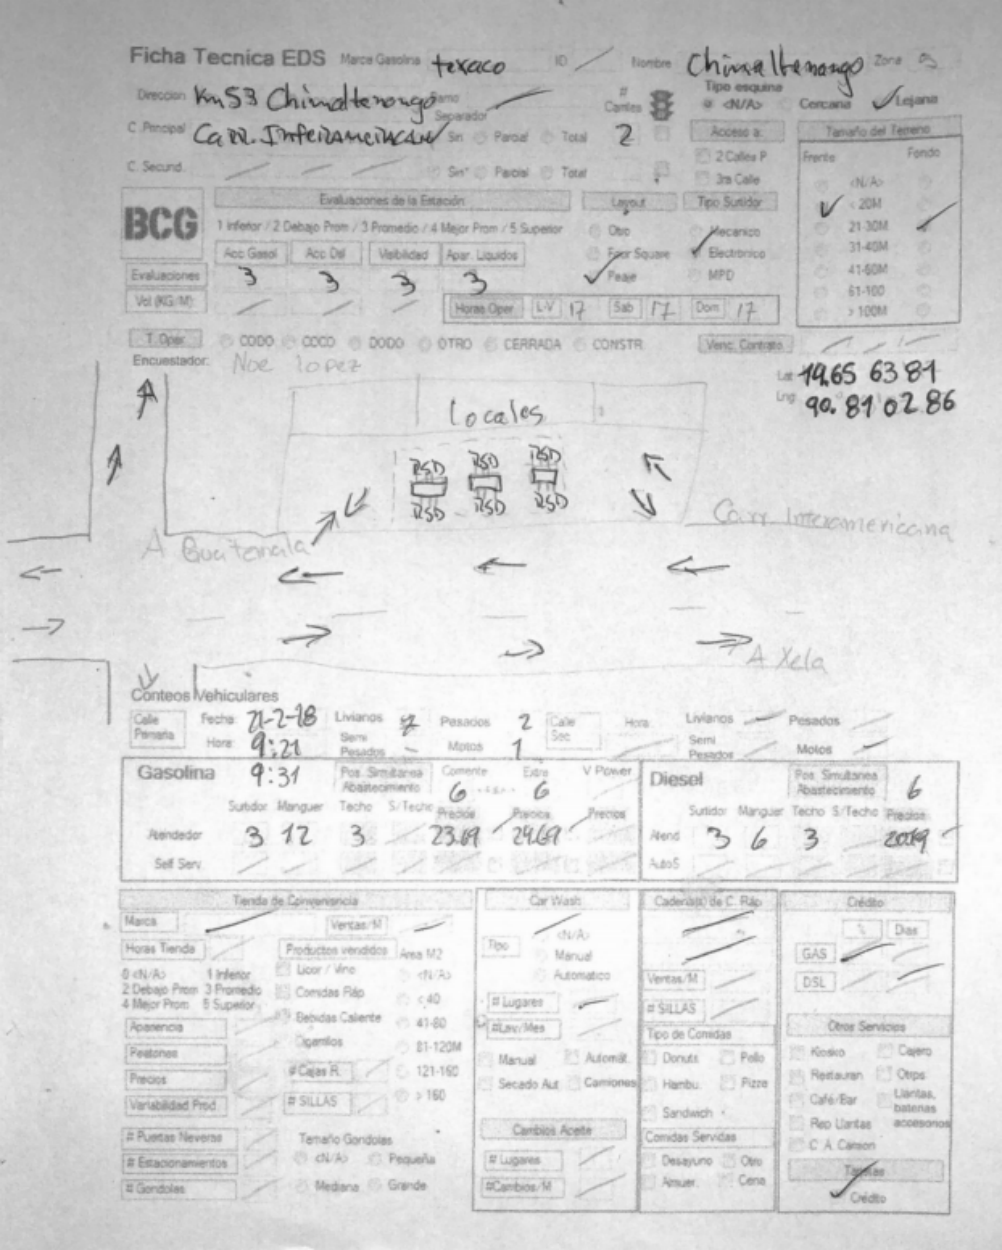 Ficha Tecnica EDS Marca Gasolina texaco ID Nombre Chimaltenango Zona
Direccion Km 53 Chimaltenango Ramo Separador # Carriles Tipo esquina <N/A> Cercana Lejana
C. Principal Carr. Interamericana Sin Parcial Total 2 Acceso a: Tamaño del Terreno
C. Secund. Sin Parcial Total 2 Calles P Frente Fondo
3ra Calle <N/A>
BCG Evaluaciones de la Estación Layout Tipo Surtidor < 20M
1 Inferior / 2 Debajo Prom / 3 Promedio / 4 Mejor Prom / 5 Superior Otro Mecanico 21-30M
Acc Gasol Acc Dsl Visibilidad Apar. Liquidos Four Square Electronico 31-40M
Evaluaciones 3 3 3 3 Peaje MPD 41-60M
61-100
Vol (KG/M) Horas Oper L-V 17 Sab 17 Dom 17 > 100M
T. Oper CODO COCO DODO OTRO CERRADA CONSTR. Venc. Contrato
Encuestador: Noe lopez
Lat 14.65 63 81
Lng 90. 81 02 86
locales
RSD RSD RSD
RSD RSD RSD
Carr. Interamericana
A Guatemala
A Xela
Conteos Vehiculares
Calle Primaria Fecha: 21-2-18 Livianos Pesados 2 Calle Sec Hora Livianos Pesados
Hora: 9:21 Semi Pesados Motos 1 Semi Pesados Motos
Gasolina 9:31 Pos. Simultanea Abastecimiento Corriente 6 Extra 6 V Power Diesel Pos. Simultanea Abastecimiento 6
Surtidor Manguer Techo S/Techo Precios Precios Precios Surtidor Manguer Techo S/Techo Precios
Atendedor 3 12 3 23.69 24.69 Atend 3 6 3 20.19
Self Serv. AutoS
Tienda de Conveniencia Car Wash Cadena(s) de C. Ráp Crédito
Marca Ventas/M <N/A> % Dias
Horas Tienda Productos vendidos Area M2 Tipo Manual GAS
0 <N/A> 1 Inferior Licor / Vino <N/A> Automatico Ventas/M DSL
2 Debajo Prom 3 Promedio Comidas Ráp < 40 # Lugares # SILLAS
4 Mejor Prom 5 Superior Bebidas Caliente 41-80 #Lav/Mes Tipo de Comidas Otros Servicios
Apariencia Cigarrillos 81-120M Manual Automát. Donuts Pollo Kiosko Cajero
Peatones # Cajas R. 121-160 Secado Aut Camiones Hambu. Pizza Restauran Otros
Precios # SILLAS > 160 Sandwich Café/Bar Llantas, baterias accesorios
Variabilidad Prod. Rep Llantas
# Puertas Neveras Tamaño Gondolas Cambios Aceite Comidas Servidas C. A. Camion
# Estacionamientos <N/A> Pequeña # Lugares Desayuno Otro Tarjetas
# Gondolas Mediana Grande #Cambios/M Almuer. Cena Crédito